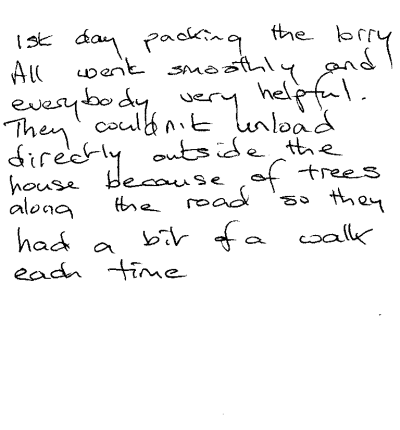 1st day packing the lorry
All went smoothly and
everybody very helpful.
They couldn't unload
directly outside the
house because of trees
along the road so they
had a bit of a walk
each time